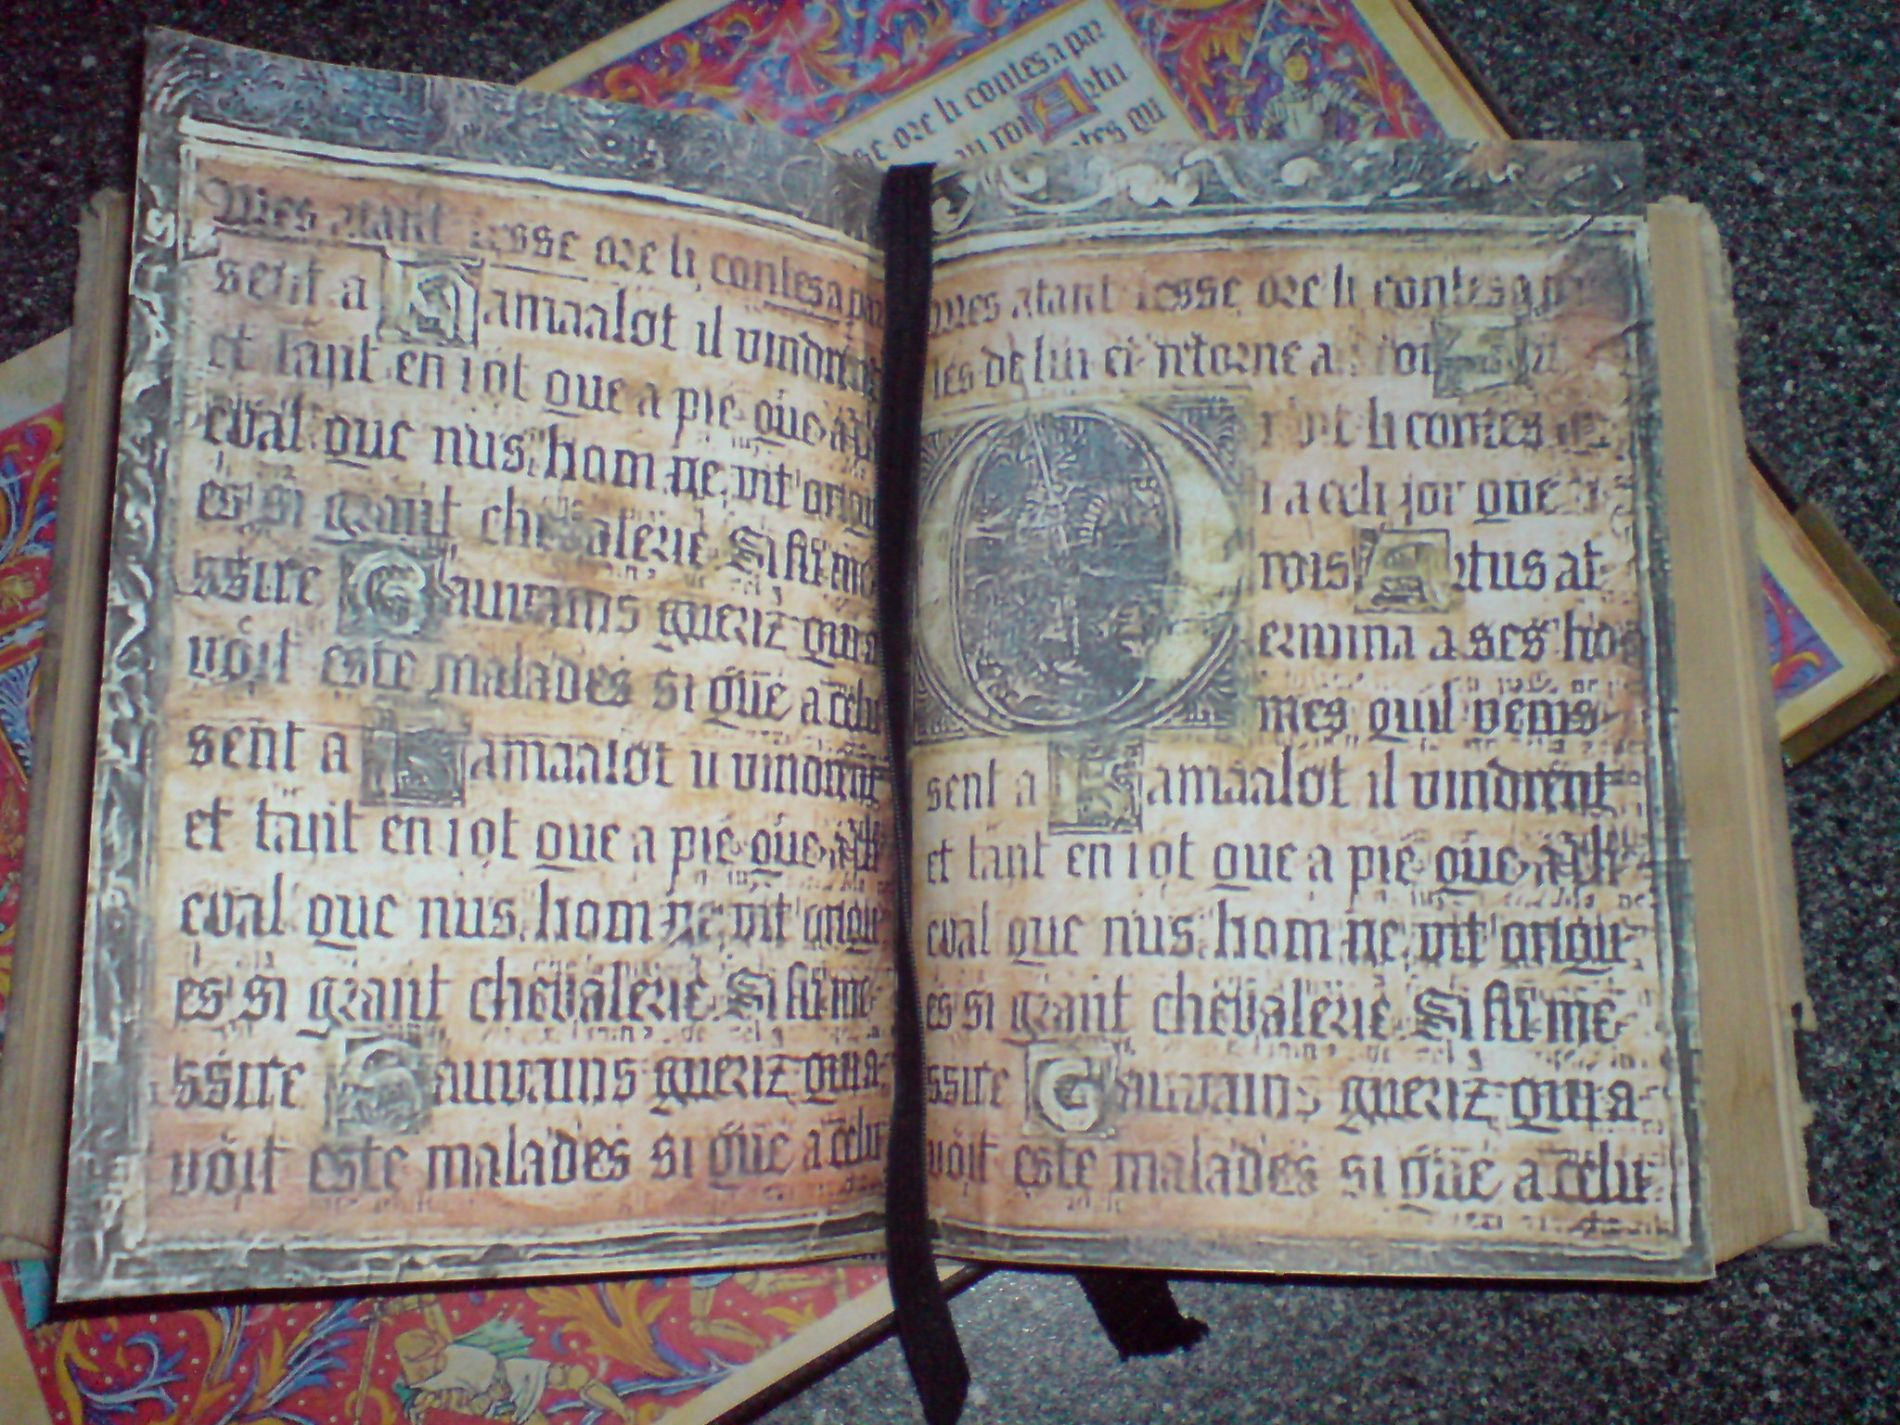 se ore li contes a par
au roi Artu
ntes qu
Mes atant lesse ore li contes a par
sent a Kamaalot il vindrent
et tant en i ot que a pie que a ch
eval que nus hom ne vit onqu
es si grant chevalerie Si fu me
ssire Gauvains gueriz qui a
voit este malades si que a celui
sent a Kamaalot il vindrent
et tant en i ot que a pie que a ch
eval que nus hom ne vit onqu
es si grant chevalerie Si fu me
ssire Gauvains gueriz qui a
voit este malades si que a celui
Mes atant lesse ore li contes a p
les de lui et retorne a roi
li contes
a celi jor que
rois Artus at
ermina a ses ho
mes quil venis
sent a Kamaalot il vindrent
et tant en i ot que a pie que a ch
eval que nus hom ne vit onqu
es si grant chevalerie Si fu me
ssire Gauvains gueriz qui a
voit este malades si que a celui